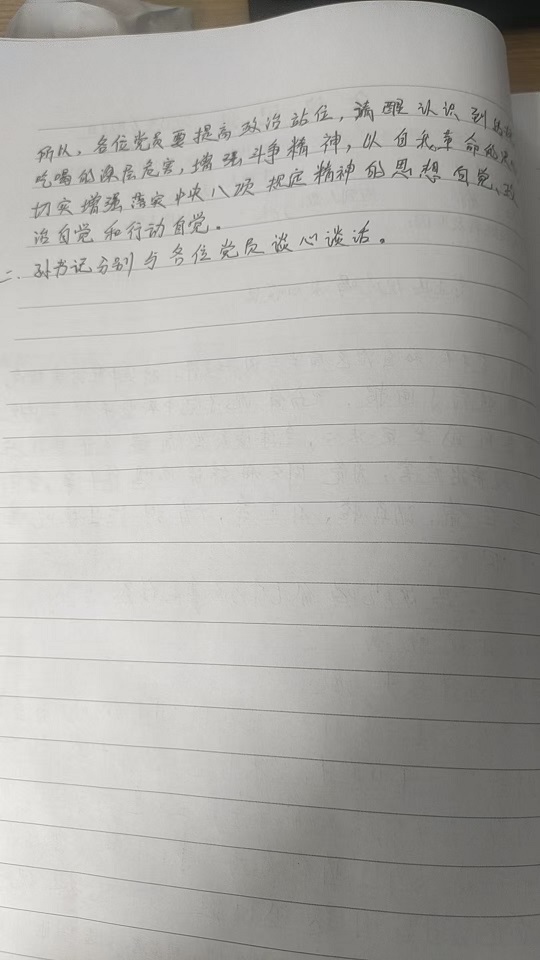 所以，各位党员要提高政治站位，清醒认识到违规
吃喝的深层危害，增强斗争精神，以自我革命的
切实增强落实中央八项规定精神的思想自觉、政
治自觉和行动自觉。
二、孙书记分别与各位党员谈心谈话。